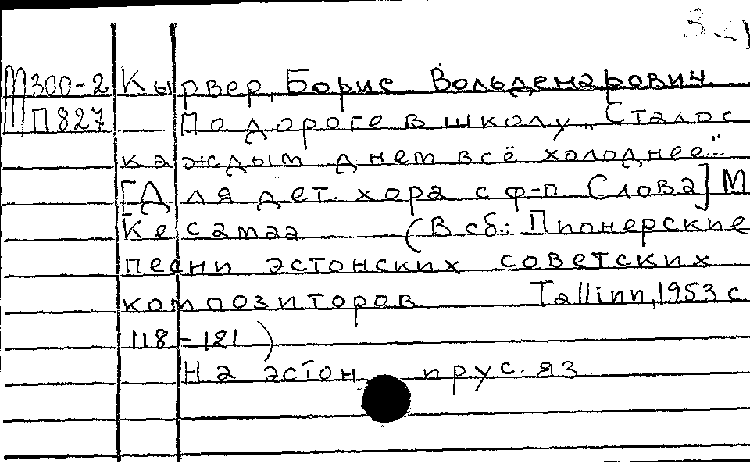 М300-2 Кырвер, Борис Вольдемарович
П827 По дороге в школу „Стало с
каждым днем всё холоднее..."
[Для дет. хора с ф-п. Слова] М
Кесамаа (В сб: Пионерские
песни эстонских советских
композиторов Tallinn, 1953 с
118-121)
На эстон и рус. яз